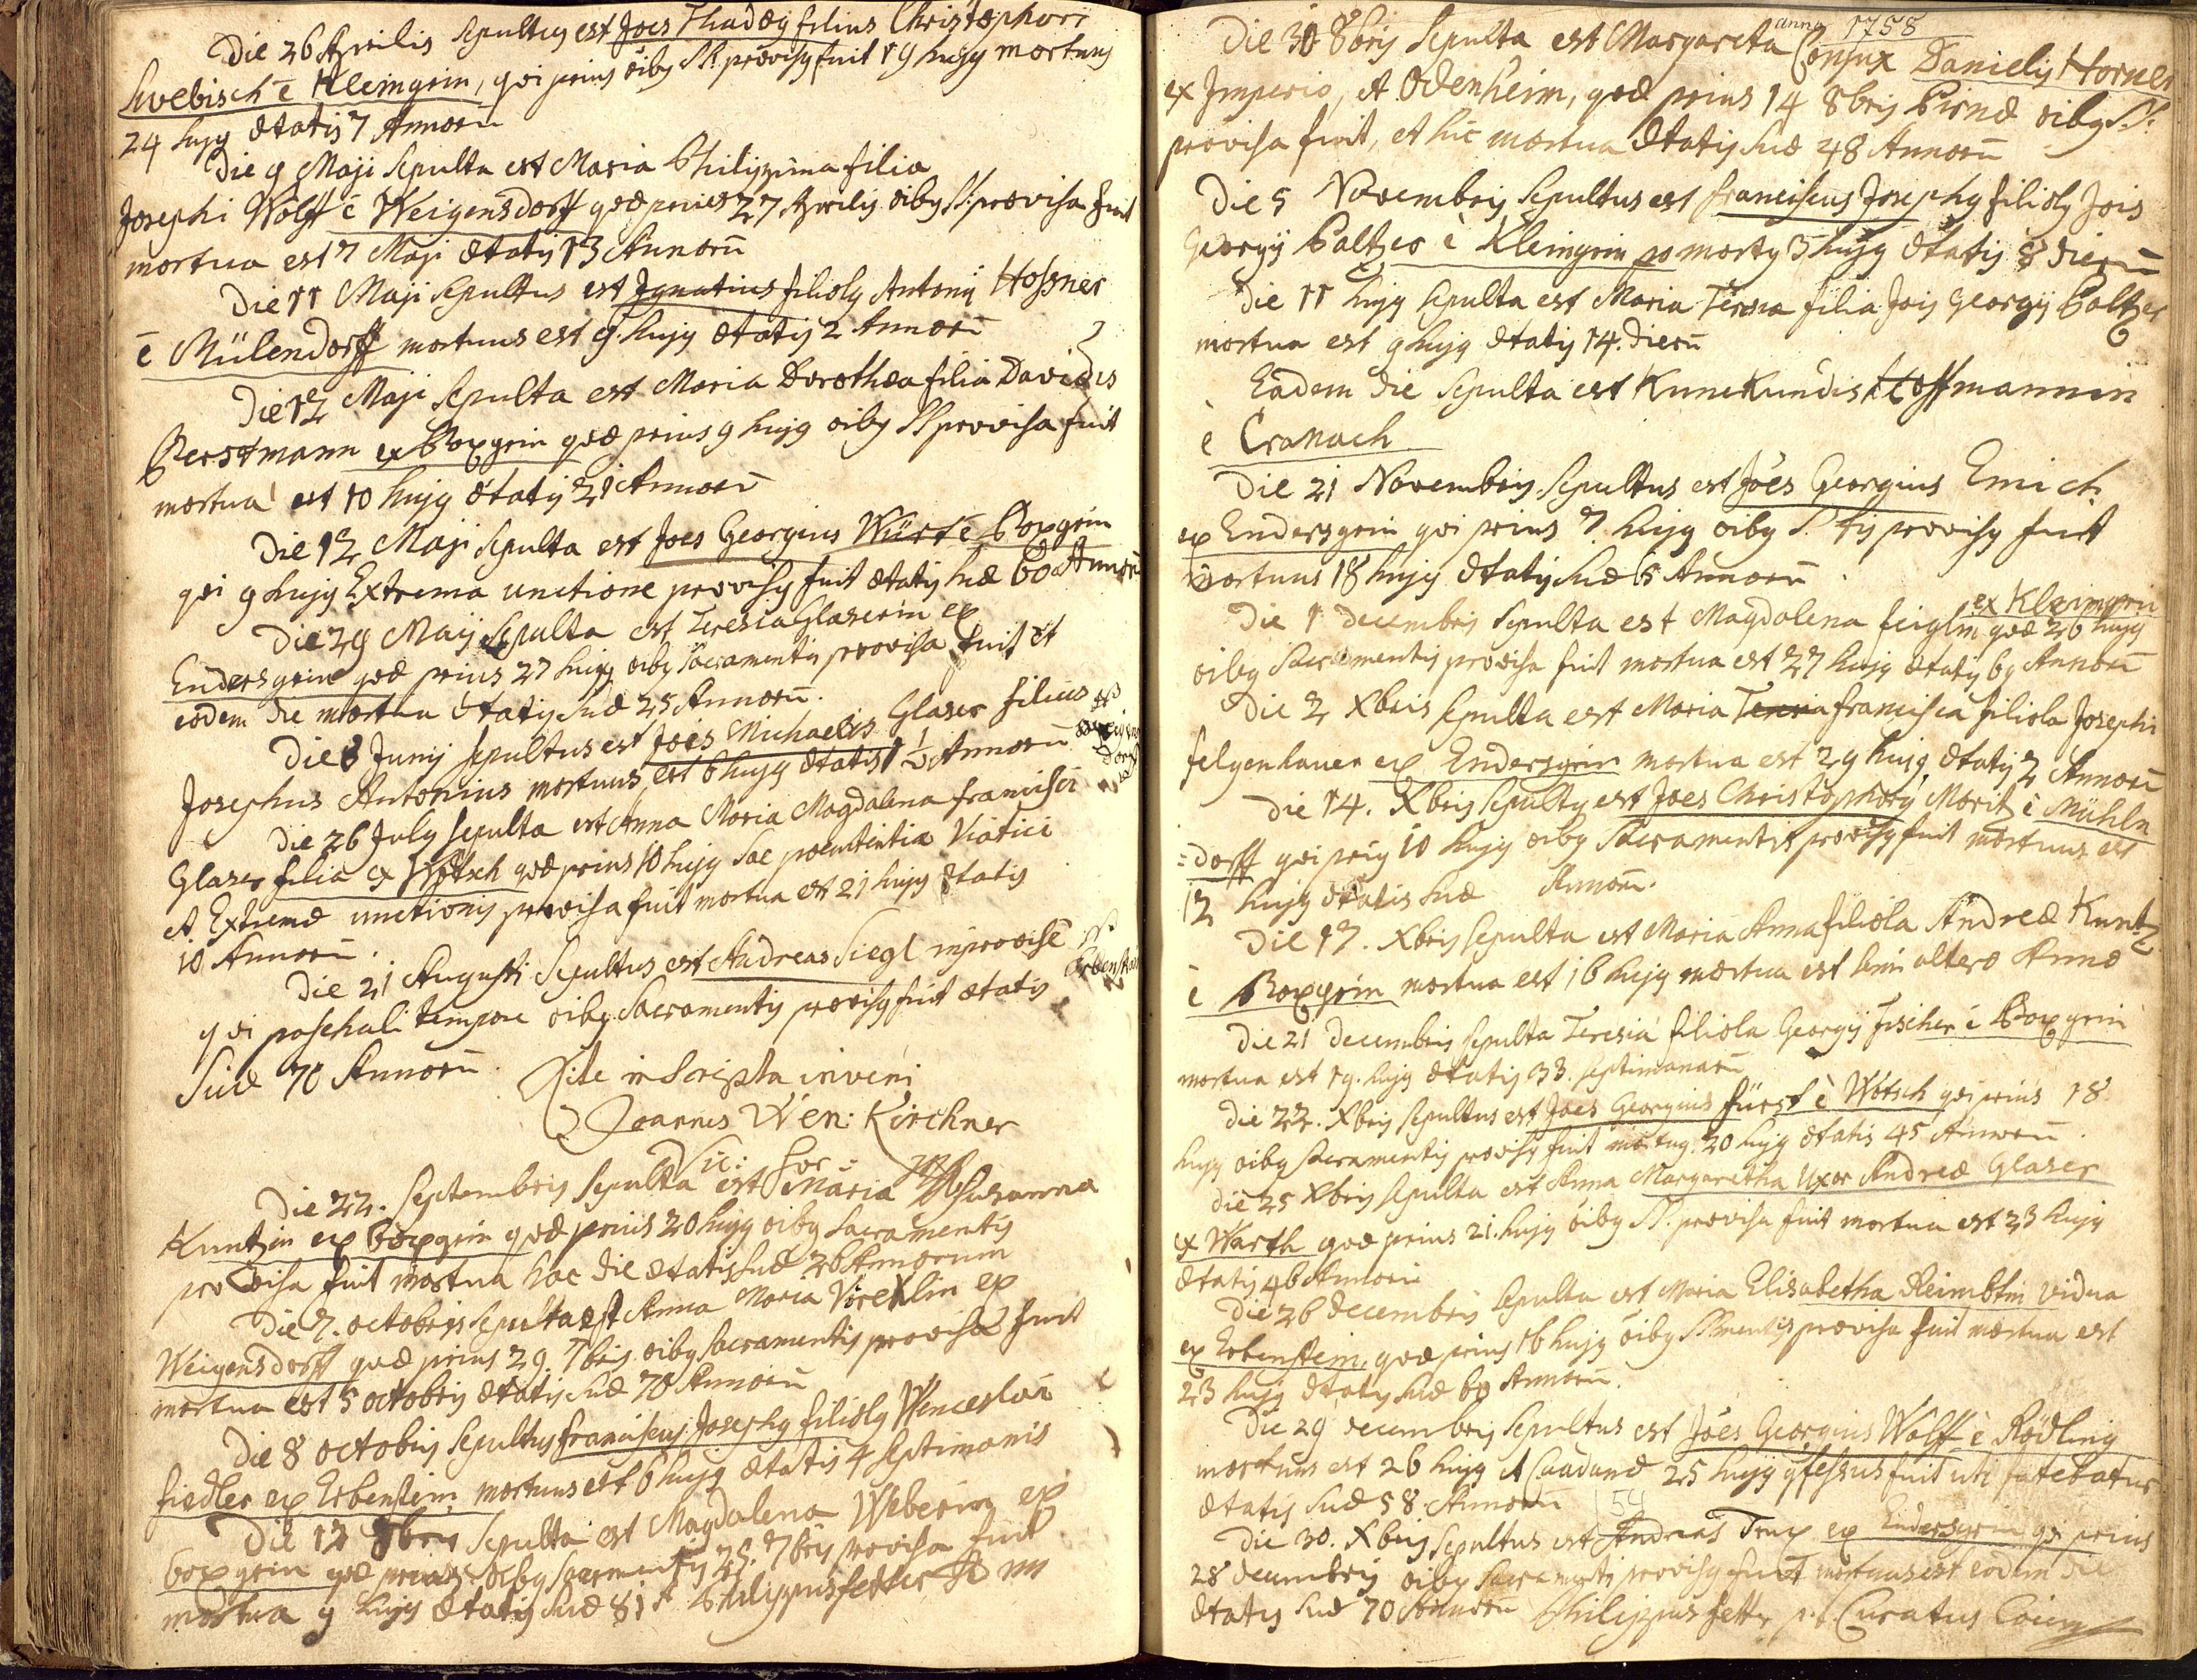 Die 26 Aprilis Sepultus est Joes Thadæg filius Christophori
Swebisch è Kleingrin, qvi prius oibg SS. provisg fuit 19 hujg mortuus
24 hujg ætatis 7 Annorū
Die 9 Maji Sepulta est Maria Philippina filia
Josephi Wolff è Weigensdorff qvæ prius 27 Aprilis oibg SS. provisa fuit
mortua est 7 Maji ætatis 13 Annorū
Die 11 Maji Sepultus est Ignatius filiolg Antonij Hossner
è Mülendorff mortuus est 9. hujg ætatis 2 Annorū
Die 12 Maji Sepulta est Maria Dorothea filia Davidis
Perstmann ex Boxgrin qvæ prius 9 hujg oibg SS provisa fuit
mortua est 10 hujg ætatis 21 Annorū
Die 12 Maji Sepulta est Joes Georgius Würt è Boxgrin
qvi 9 hujg Extrema unctione provisg fuit ætatis suæ 60 Annorū
Die 29 Maij Sepulta est Teresia Glaserin ex
Endersgrin qvæ prius 27 hujg oibg Sacramentis provisa fuit et
eodem die mortua ætatis suæ 25 Annorū.
Die 8 Junij sepultus est Joes Michaelis Glaser filius ex
Josephus Antonius mortuus est 6 hujg ætatis 1 1/2 Annorū
Die 26 July sepulta est Anna Maria Magdalena francisci
Glaser filia ex Wotsch qvæ prius 10 hujg Sac poenitentiæ Viatici
et Extremæ unctionis provisa fuit mortua est 21 hujg ætatis
10 Annorū.
Die 21 Augusti Sepultus est Andreas Siegl improvise ex
Erbenstein
qvi paschali tempore oibg Sacramentis provisg fuit ætatis
suæ 70 Annorū.
Rite inscripta inveni
Joannes Wen: Kirchner
Vic: For:
Die 22. Septembris Sepulta est Maria Susanna
Kuntzin ex boxgrin qvæ prius 20 hujg oibg Sacramentis
provisa fuit mortua hac die ætatis suæ 26 Annorum
Die 7. octobris Sepulta est Anna Maria Vireklin ex
Weigensdorff qvæ prius 29. 7bris oibg Sacramentis provisa fuit
mortua est 5 octobris ætatis suæ 70 Annorū
Die 8 octobris Sepultus franciscus Josephg filiolg Wenceslai
fiedler ex Erbenstein mortuus est 6 hujg ætatis 4 septimanis
Die 12 8bris Sepulta est Magdalena Weberin ex
boxgrin qvæ prius oibg sacramentis 25. 7bris provisa fuit
mortua 9 hujg ætatis suæ 81 A Philippus fetter
anno 1758
Die 30 8bris Sepulta est Margareta Conjux Danielis Horner
ex Imperio, et Odenheim, qvæ prius 14 8bris Pirnæ oibg SS.
provisa fuit, et hic mortua ætatis suæ 48 Annorū
Die 5 Novembris Sepultus est franciscus Josephg filiolg Jois
Georgij Baltzer è Kleingrin mortg 3 hujg ætatis 8 dierū
Die 11 hujg Sepulta est Maria Teresia filia Jois Georgij Baltzer
mortua est 9 hujg ætatis 14. dierū
Eadem die Sepulta est Kunekundis Hoffmannin
è Cranach
Die 21 Novembris Sepultus est Joes Georgius Emich
ex Endersgrin qvi prius 7 hujg oibg S. tis provisg fuit
mortuus 18 hujg ætatis suæ 65 Annorū
ex Kleingrin
Die 1 Decembris Sepulta est Magdalena feiglin qvæ 26 hujg
oibg Sacramentis provisa fuit mortua est 27 hujg ætatis 69 Annorū
Die 2 Xbris Sepulta est Maria Teresia francisca filiola Josephi
felgenhauer ex Endersgrin mortua est 29 hujg ætatis 2 Annorū
Die 14. Xbris Sepultg est Joes Christophorg Moritz è Mühln
=dorff qvi prig 10 hujg oibg Sacramentis provisg fuit mortuus est
12 hujg ætatis suæ Annorū.
Die 17. Xbris Sepulta est Maria Anna filiola Andreæ Kuntz
è Boxgrin mortua est 16 hujg mortua est semi altero Anno
Die 21 Decembris Sepulta Teresia filiola Georgij Fischer è Boxgrin
mortua est 19. hujg ætatis 33. septimanarū
Die 22. Xbris Sepultus est Joes Georgius fürst è Wotsch qvi prius 18
hujg oibg Sacramentis provisg fuit mortug 20 hujg ætatis 45 Annorū.
Die 25 Xbris Sepulta est Anna Margaretha Uxor Andreæ Glaser
ex Warth qvæ prius 21. hujg oibg SS. provisa fuit mortua est 23 hujg
ætatis 46 Annorū
Die 26 Decembris Sepulta est Maria Elisabetha Reimbtin vidua
ex Erbenstein, qvæ prius 16 hujg oibg SSmentis provisa fuit mortua est
23 hujg ætatis suæ 69 Annorū.
Die 29 decembris Sepultus est Joes Georgius Wolff è Rödling
mortuus est 26 hujg et Caadanæ 25 hujg gfessus fuit uti fatebatur
ætatis suæ 58. Annorū 54
Die 30. Xbris Sepultus est Andreas Trux ex Endersgrin qi prius
28 decembris oibg Sacramentis provisg fuit mortuus est eodem die
ætatis suæ 70 Annorū Philippus fetter p.t. Curatus